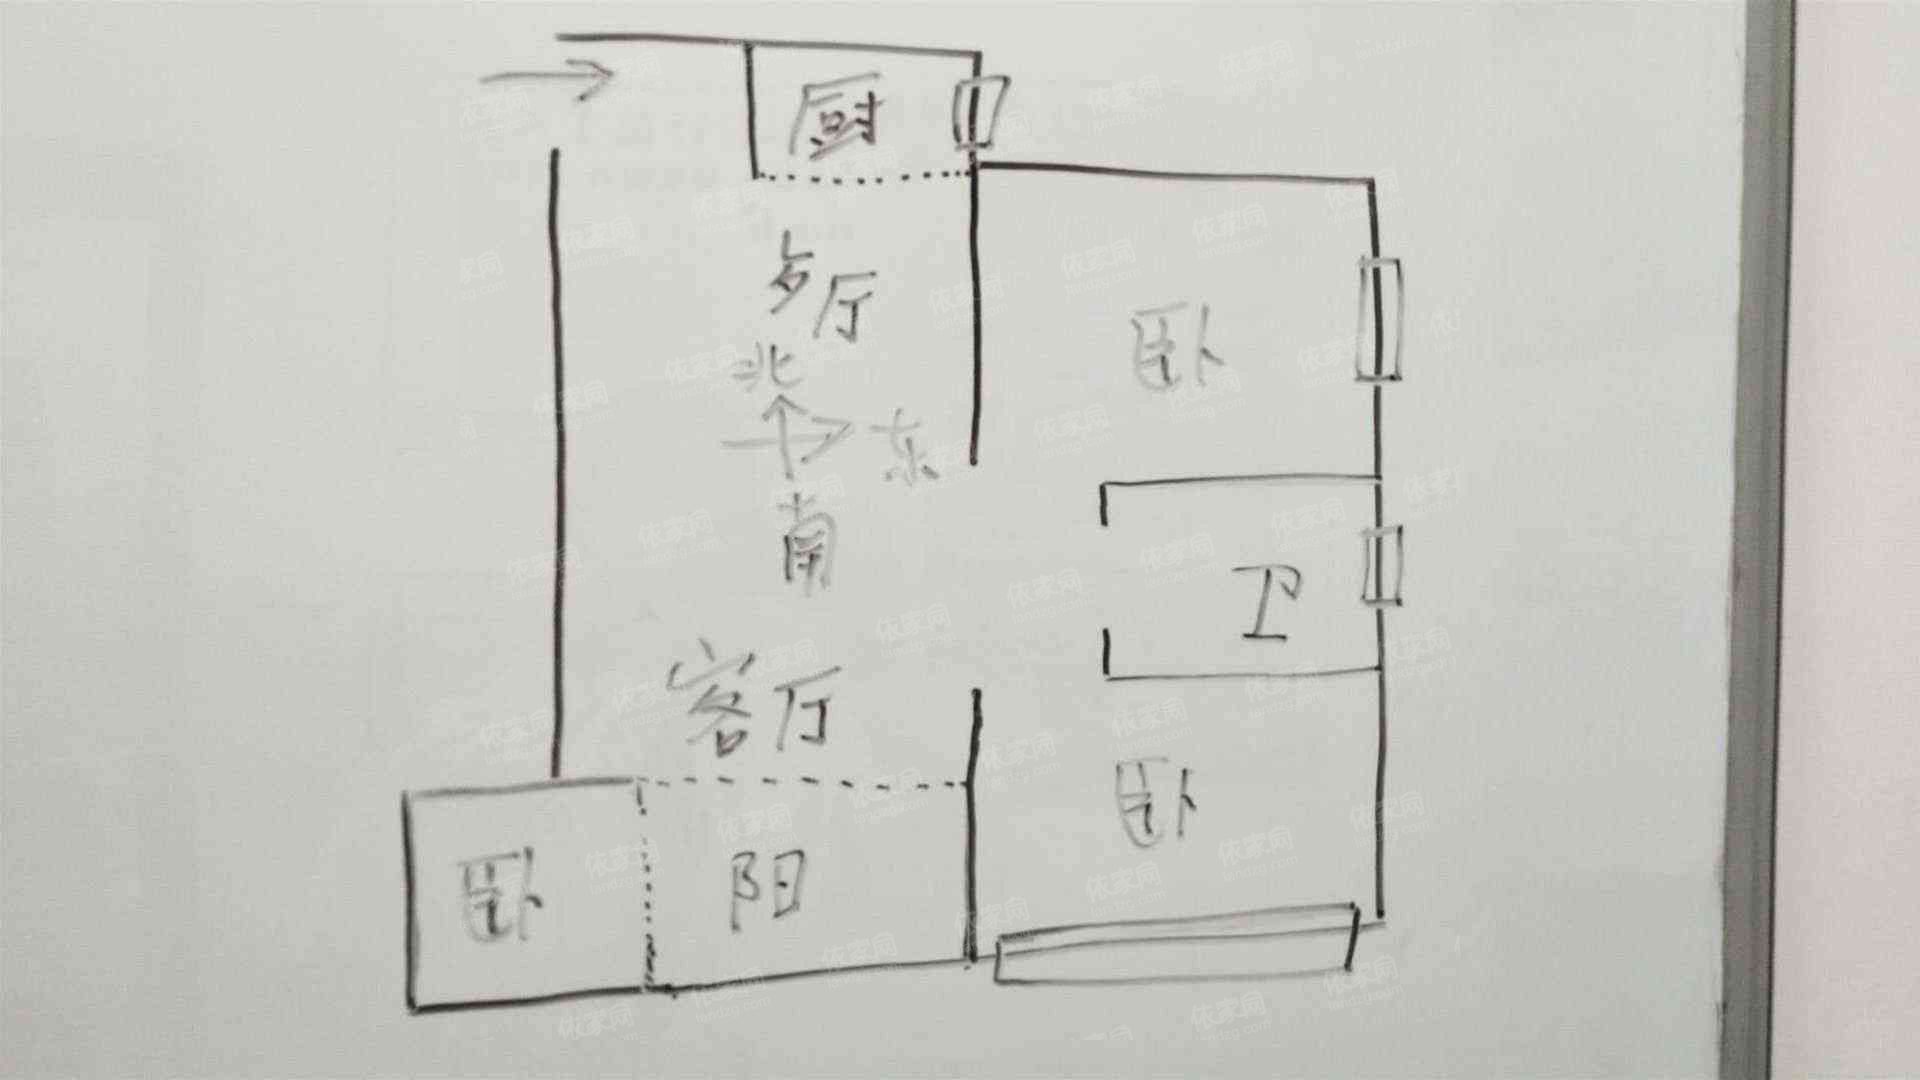 厨
歺厅
北
东
南
卧
卫
客厅
卧
卧
阳
依家网
landzg.com